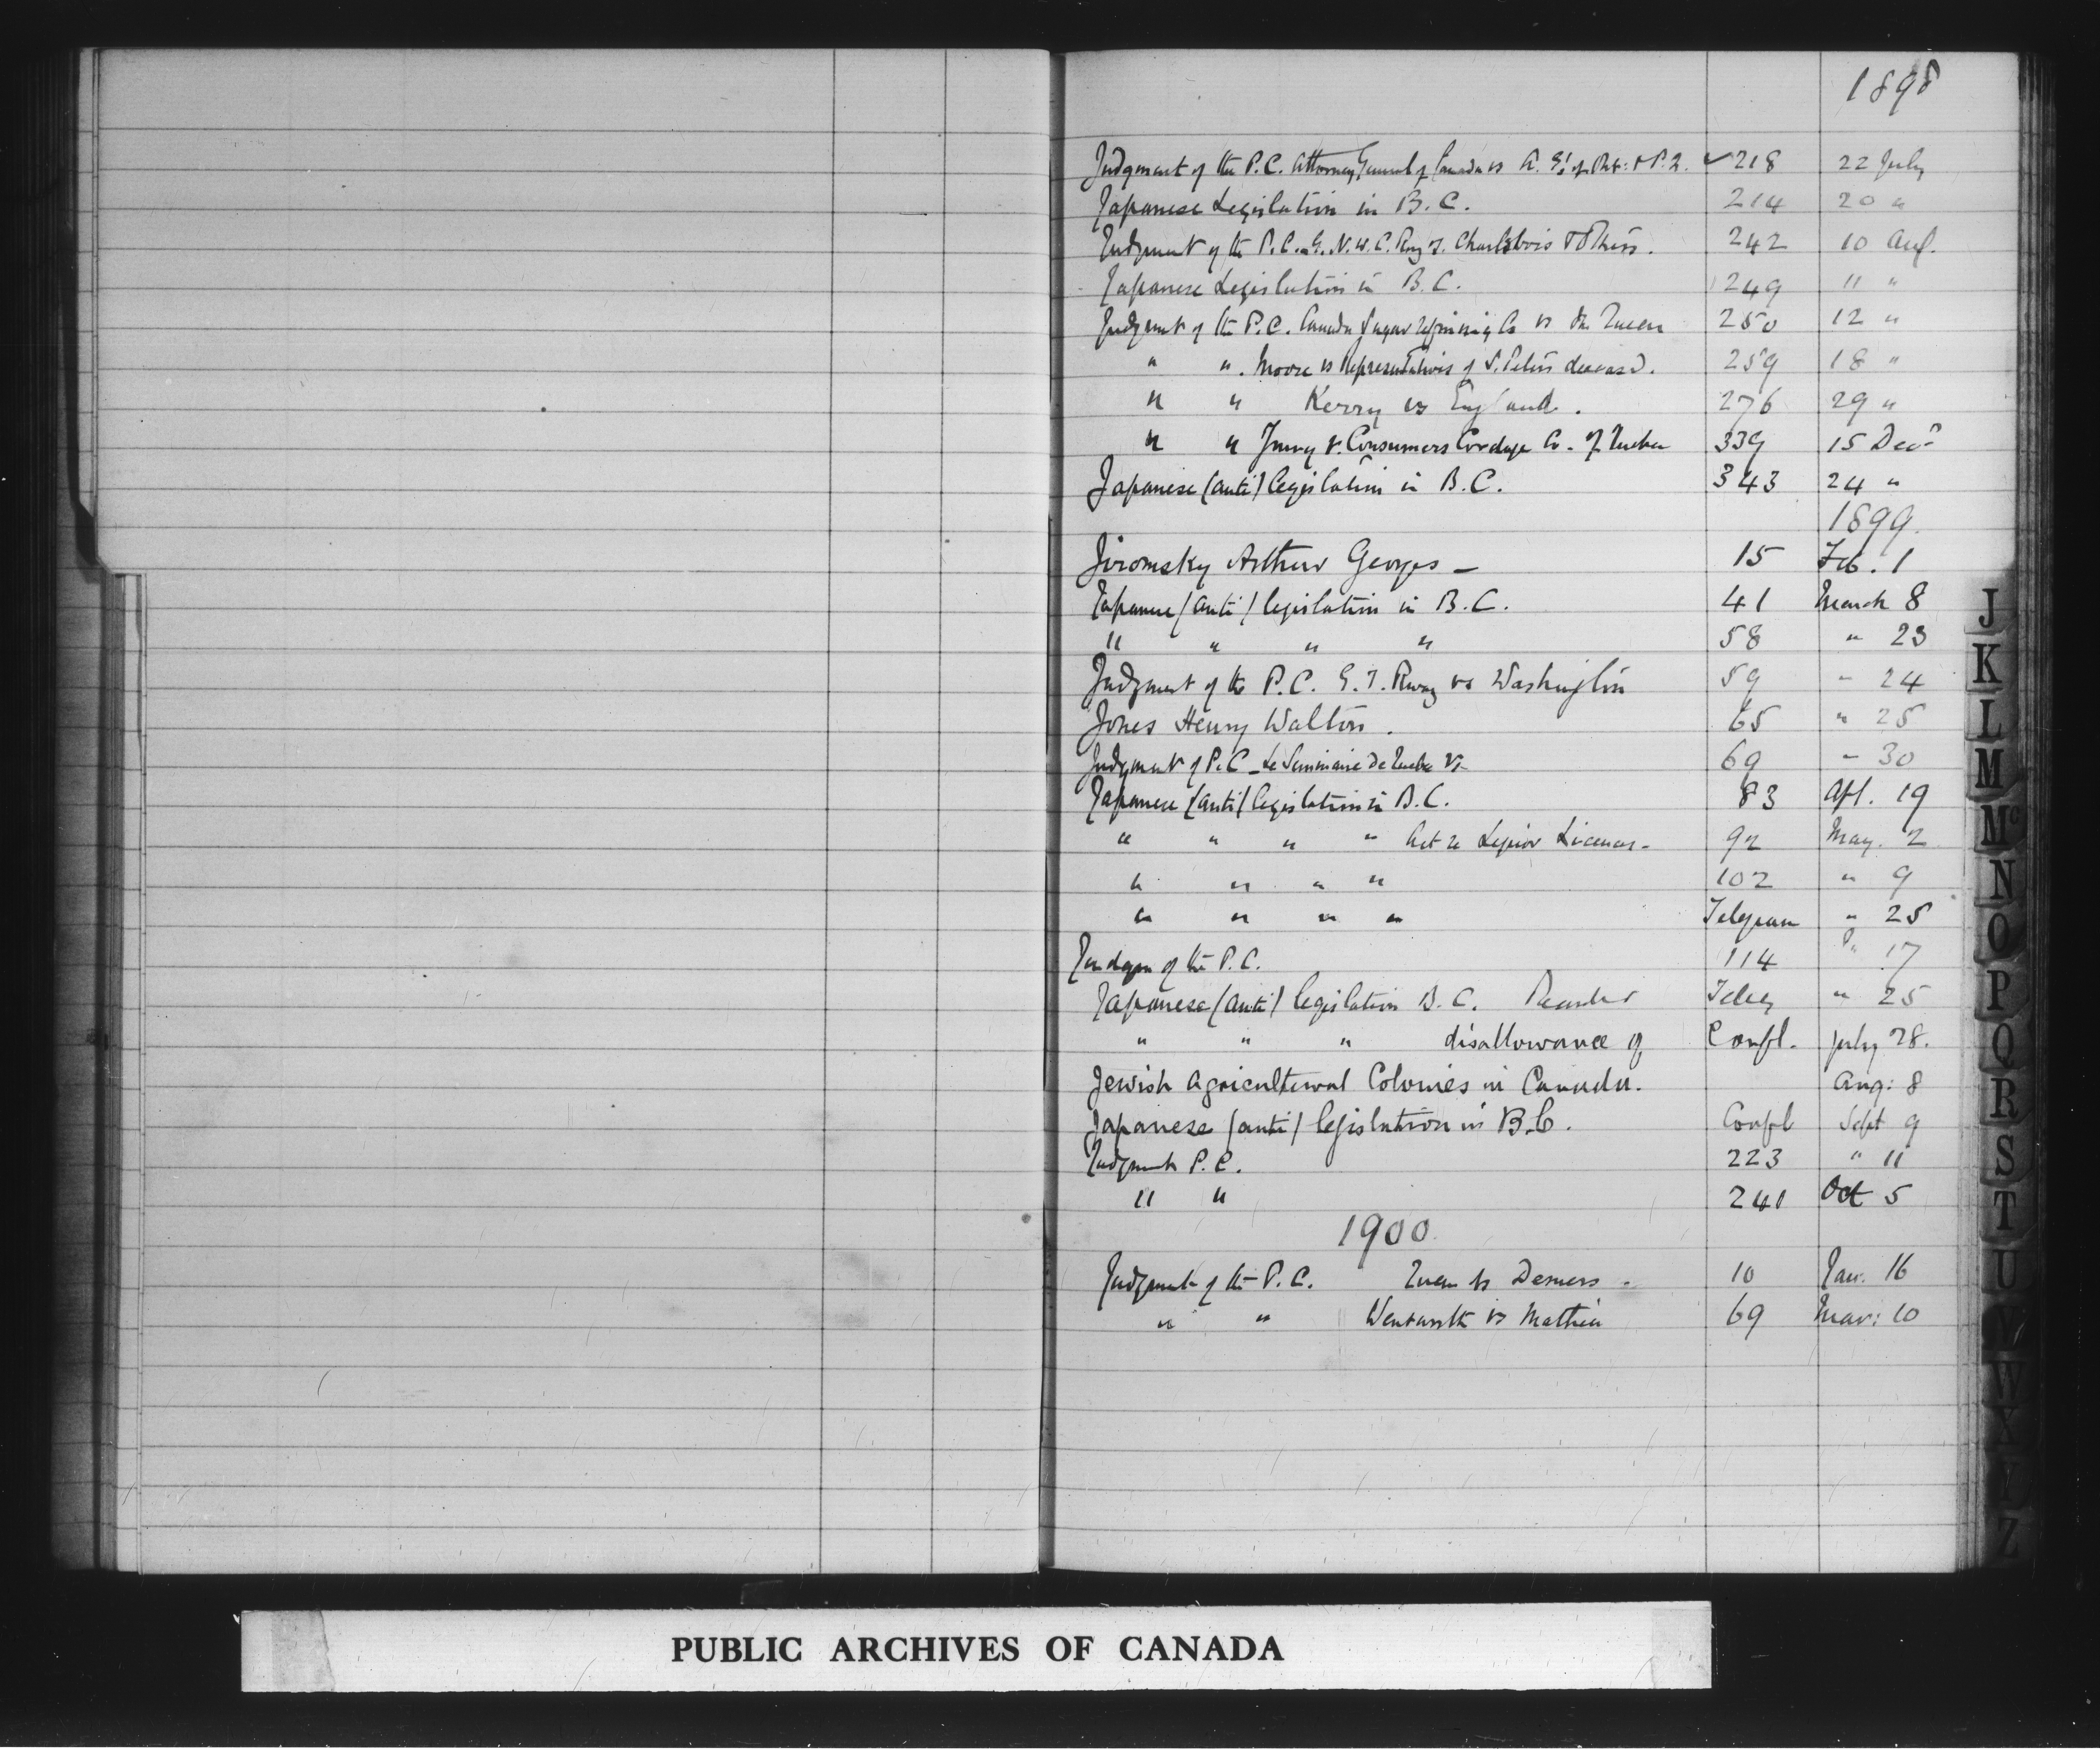 1898
Judgment of the P.C. Attorney General of Canada vs A. G.'s of Ont: & P.Q. ✓ 218 22 July
Japanese Legislation in B.C. 214 20 "
Judgment of the P.C. G. N. W. C. Rwy v. Charlebois & Others. 242 10 Aug.
Japanese Legislation in B.C. 249 11 "
Judgment of the P.C. Canada Sugar Refining Co vs The Queen 250 12 "
" " . Moore vs Representatives of S. Peters deceased. 259 18 "
" " Kerry vs England. 276 29 "
" " v. Consumers Cordage Co. of Quebec 339 15 Decr
Japanese (anti) legislation in B.C. 343 24 "
1899.
Jiromsky Arthur Georges — 15 Feb. 1
Japanese (anti) legislation in B.C. 41 March 8
" " " " 58 " 23
Judgment of the P.C. G.T. Rway vs Washington 59 " 24
Jones Henry Walton. 65 " 25
Judgment of P.C — Le Seminaire De Quebec vs — 69 " 30
Japanese (anti) legislation in B.C. 83 Apl. 19
" " " " Act re Liquor Licenses - 92 May. 2
" " " " 102 " 9
" " " " Telegram " 25
Judgm of the P.C. 114 " 17
Japanese (anti) legislation B.C. Teleg " 25
" " " disallowance of Confl. July 28.
Jewish Agricultural Colonies in Canada. Aug: 8
Japanese (anti) legislation in B.C. Confl Sept 9
Judgment P.C. 223 " 11
" " 240 Oct 5
1900.
Judgment of the P.C. Queen vs Demers - 10 Jan. 16
" " Wentworth vs Mathieu 69 Mar: 10
J
K
L
M
Mc
N
O
P
Q
R
S
T
U
W
X
Z
PUBLIC ARCHIVES OF CANADA